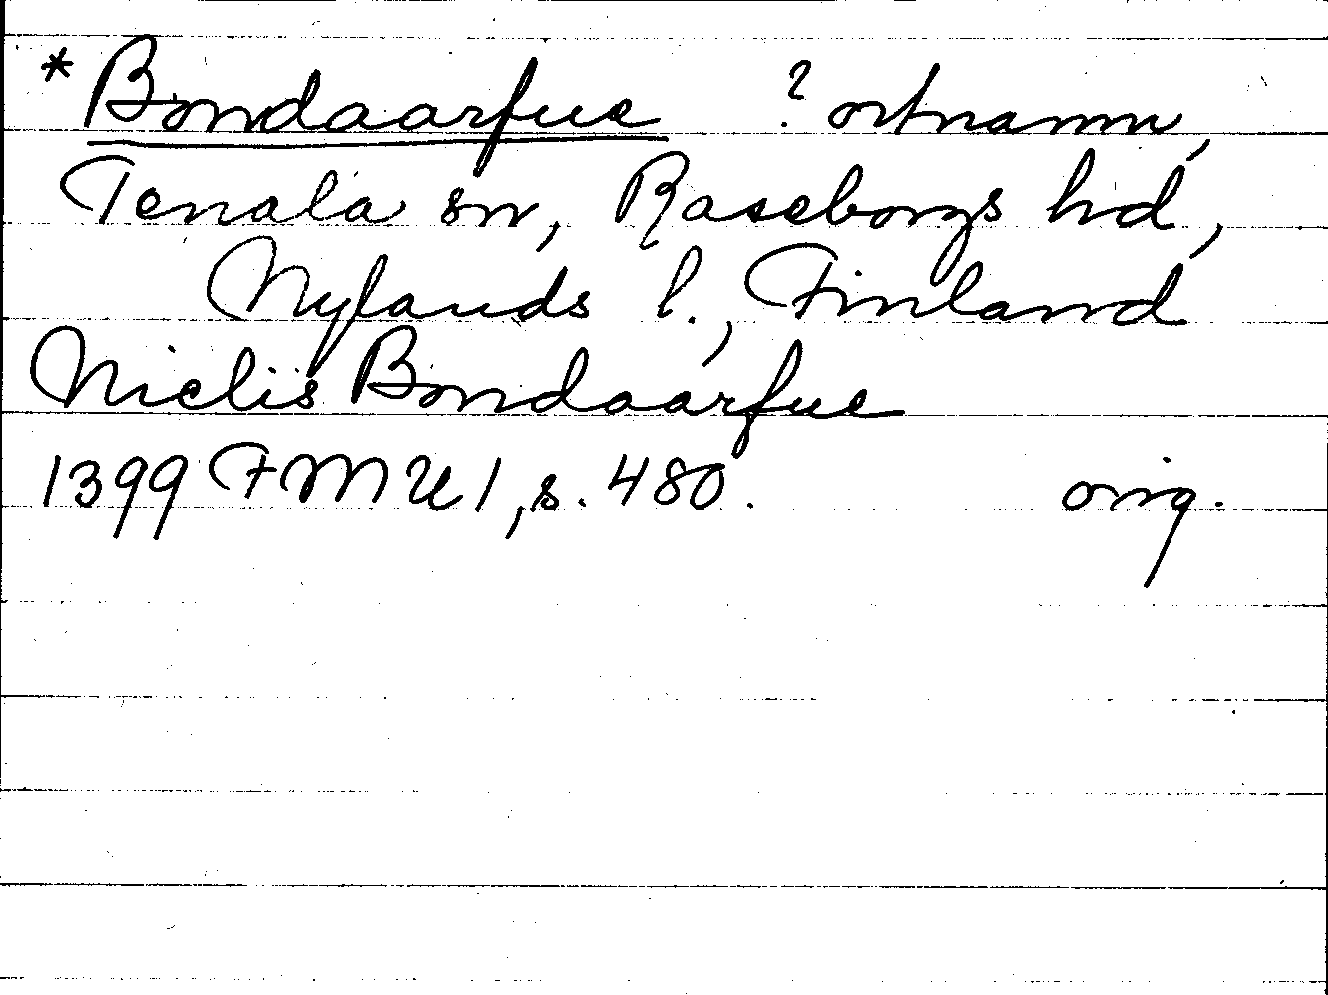 * Bondaarfue ? ortnamn,
Tenala sn, Raseborgs hd,
Nylands l., Finland
Niclis Bondaarfue
1399 FMU 1, s. 480. orig.